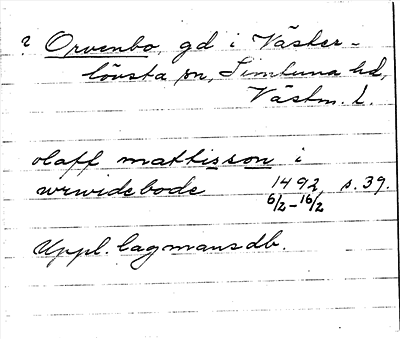 ? Orvenbo, gd i Väster-
lövsta sn, Simtuna hd,
Västm. l.
olaff mattisson i
wrwidebode 1492 s. 39.
6/2-16/2
Uppl. lagmansdb.